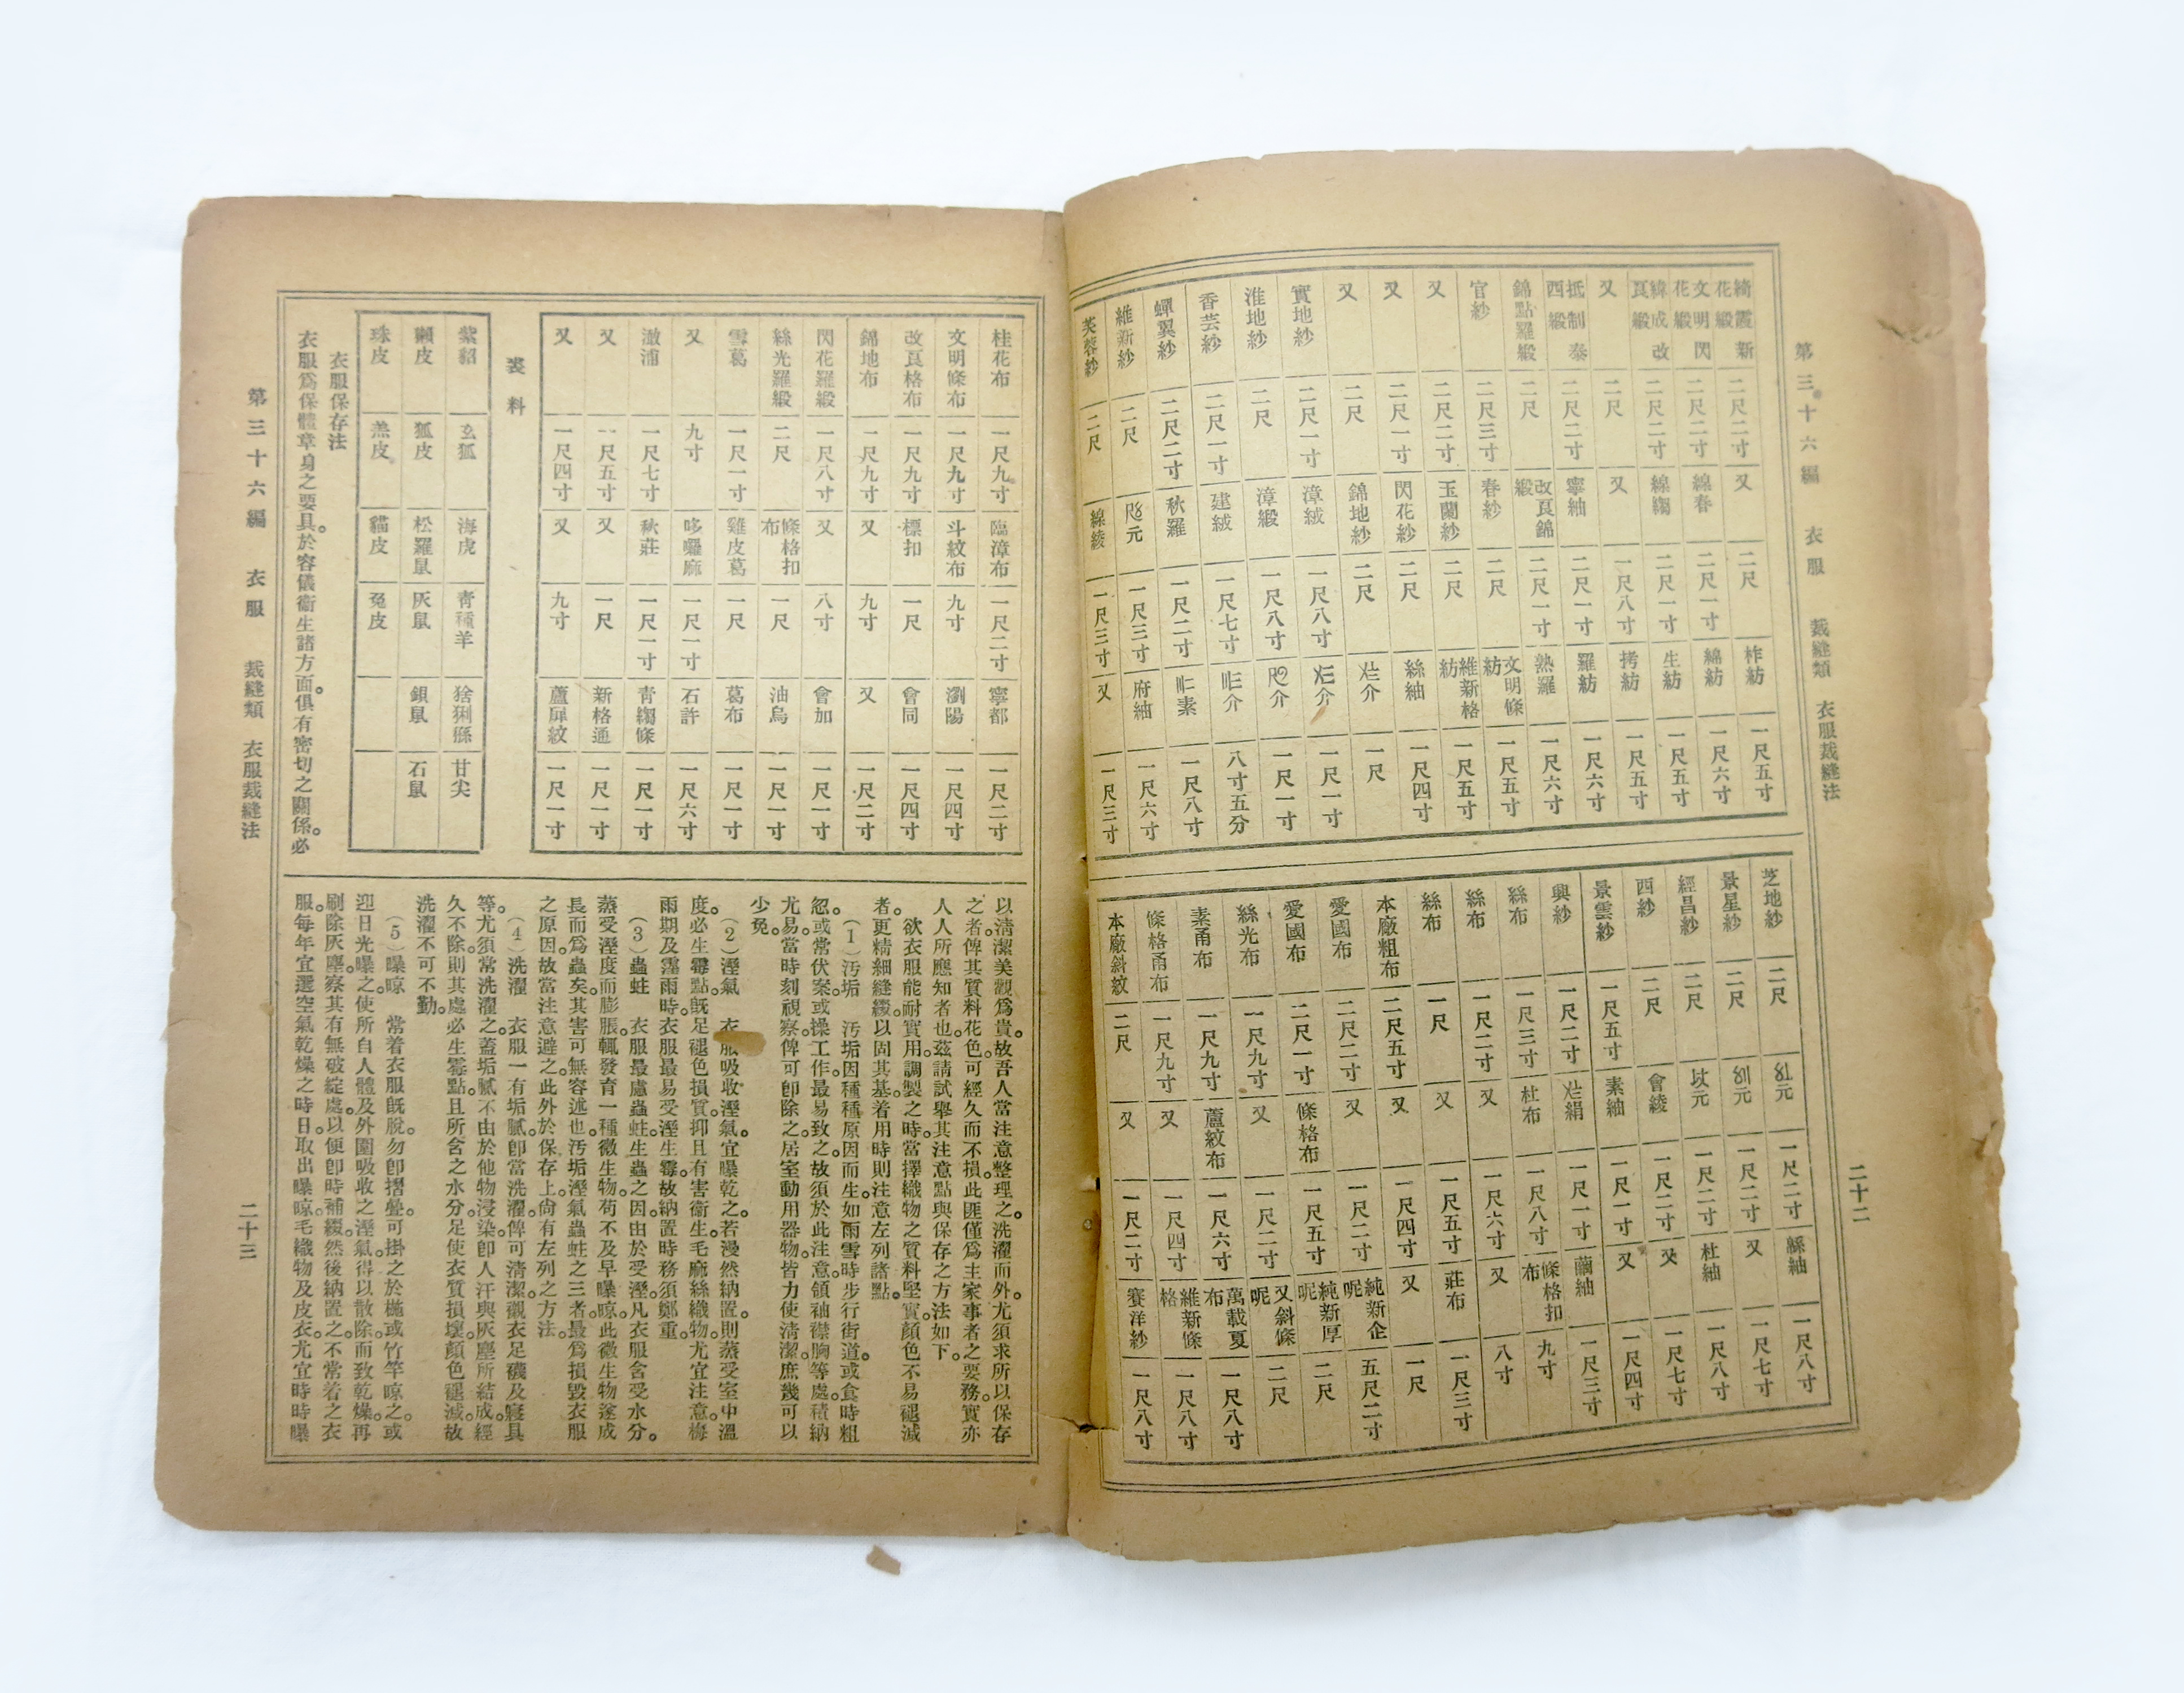 第三十六編 衣服 裁縫類 衣服裁縫法 二十二
綺霞新花緞 二尺二寸 又 二尺 柞紡 一尺五寸
文明閃花緞 二尺二寸 線春 二尺一寸 綿紡 一尺六寸
緯成改良緞 二尺二寸 線縐 二尺一寸 生紡 一尺五寸
又 二尺 又 一尺八寸 拷紡 一尺五寸
抵制泰西緞 二尺二寸 寧紬 二尺一寸 羅紡 一尺六寸
錦點羅緞 二尺 改良錦緞 二尺一寸 熟羅 一尺六寸
官紗 二尺三寸 春紗 二尺 文明條紡 一尺五寸
又 二尺二寸 玉蘭紗 二尺 維新格紡 一尺五寸
又 二尺一寸 閃花紗 二尺 絲紬 一尺四寸
又 二尺 錦地紗 二尺 介 一尺
實地紗 二尺一寸 漳絨 一尺八寸 介 一尺一寸
淮地紗 二尺 漳緞 一尺八寸 介 一尺一寸
香芸紗 二尺一寸 建絨 一尺七寸 介 八寸五分
蟬翼紗 二尺二寸 秋羅 一尺二寸 素 一尺八寸
維新紗 二尺 元 一尺三寸 府紬 一尺六寸
芙蓉紗 二尺 線綾 一尺三寸 又 一尺三寸
芝地紗 二尺 元 一尺二寸 緜紬 一尺八寸
景星紗 二尺 元 一尺二寸 又 一尺七寸
經昌紗 二尺 元 一尺二寸 杜紬 一尺八寸
西紗 二尺 會綾 一尺二寸 又 一尺七寸
景雲紗 一尺五寸 素紬 一尺一寸 又 一尺四寸
興紗 一尺二寸 絹 一尺一寸 繭紬 一尺三寸
絲布 一尺三寸 杜布 一尺八寸 條格扣布 九寸
絲布 一尺二寸 又 一尺六寸 又 八寸
絲布 一尺 又 一尺五寸 莊布 一尺三寸
本廠粗布 二尺五寸 又 一尺四寸 又 一尺
愛國布 二尺二寸 又 一尺二寸 純新企呢 五尺二寸
愛國布 二尺一寸 條格布 一尺五寸 純新厚呢 二尺
絲光布 一尺九寸 又 一尺二寸 又斜條呢 二尺
素甬布 一尺九寸 蘆紋布 一尺六寸 萬載夏布 一尺八寸
條格甬布 一尺九寸 又 一尺四寸 維新條格 一尺八寸
本廠斜紋 二尺 又 一尺二寸 賽洋紗 一尺八寸
桂花布 一尺九寸 臨漳布 一尺二寸 寧都 一尺二寸
文明條布 一尺九寸 斗紋布 九寸 瀏陽 一尺四寸
改良格布 一尺九寸 標扣 一尺 會同 一尺四寸
錦地布 一尺九寸 又 九寸 又 一尺二寸
閃花羅緞 一尺八寸 又 八寸 會加 一尺一寸
絲光羅緞 二尺 條格扣布 一尺 油烏 一尺一寸
雪葛 一尺一寸 雞皮葛 一尺 葛布 一尺一寸
又 九寸 哆囉麻 一尺一寸 石許 一尺六寸
澈浦 一尺七寸 秋莊 一尺一寸 青縐條 一尺一寸
又 一尺五寸 又 一尺 新格通 一尺一寸
又 一尺四寸 又 九寸 蘆扉紋 一尺一寸
裘料
紫貂 玄狐 海虎 青種羊 猞猁猻 甘尖
獺皮 狐皮 松羅鼠 灰鼠 銀鼠 石鼠
珠皮 羔皮 貓皮 兔皮
衣服保存法
衣服爲保體章身之要具。於容儀衞生諸方面。俱有密切之關係。必
以清潔美觀爲貴。故吾人當注意整理之。洗濯而外。尤須求所以保存
之者。俾其質料花色。可經久而不損。此匪僅爲主家事者之要務。實亦
人人所應知者也。茲請試舉其注意點與保存之方法如下。
欲衣服能耐實用。調製之時。當擇織物之質料堅實。顏色不易褪減
者。更精細縫綴。以固其基。着用時則注意左列諸點。
（1）汚垢 汚垢因種種原因而生。如雨雪時步行街道。或食時粗
忽。或常伏案。或操工作。最易致之。故須於此注意。領袖襟胸等處。積納
尤易。當時刻視察。俾可卽除之。居室動用器物。皆力使清潔。庶幾可以
少免。
（2）溼氣 衣服吸收溼氣。宜曝乾之。若漫然納置。則蒸受室中溫
度。必生霉點。旣足褪色損質。抑且有害衞生。毛麻絲織物。尤宜注意。梅
雨期及霪雨時。衣服最易受溼生霉。故納置時務須鄭重。
（3）蟲蛀 衣服最慮蟲蛀。生蟲之因。由於受溼。凡衣服含受水分。
蒸受溼度而膨脹。輒發育一種微生物。苟不及早曝晾。此微生物遂成
長而爲蟲矣。其害可無容述也。汚垢溼氣蟲蛀之三者。最爲損毀衣服
之原因。故當注意避之。此外於保存上。尙有左列之方法
（4）洗濯 衣服一有垢膩。卽當洗濯。俾可清潔。襯衣足襪及寢具
等。尤須常洗濯之。蓋垢膩不由於他物浸染。卽人汗與灰塵所結成。經
久不除。則其處必生霉點。且所含之水分。足使衣質損壞。顏色褪減。故
洗濯不可不勤。
（5）曝晾 常着衣服旣脫。勿卽摺疊。可掛之於椸或竹竿晾之。或
迎日光曝之。使所自人體及外圍吸收之溼氣。得以散除。而致乾燥。再
刷除灰塵。察其有無破綻處。以便卽時補綴。然後納置之。不常着之衣
服。每年宜選空氣乾燥之時日。取出曝晾。毛織物及皮衣。尤宜時時曝
第三十六編 衣服 裁縫類 衣服裁縫法 二十三